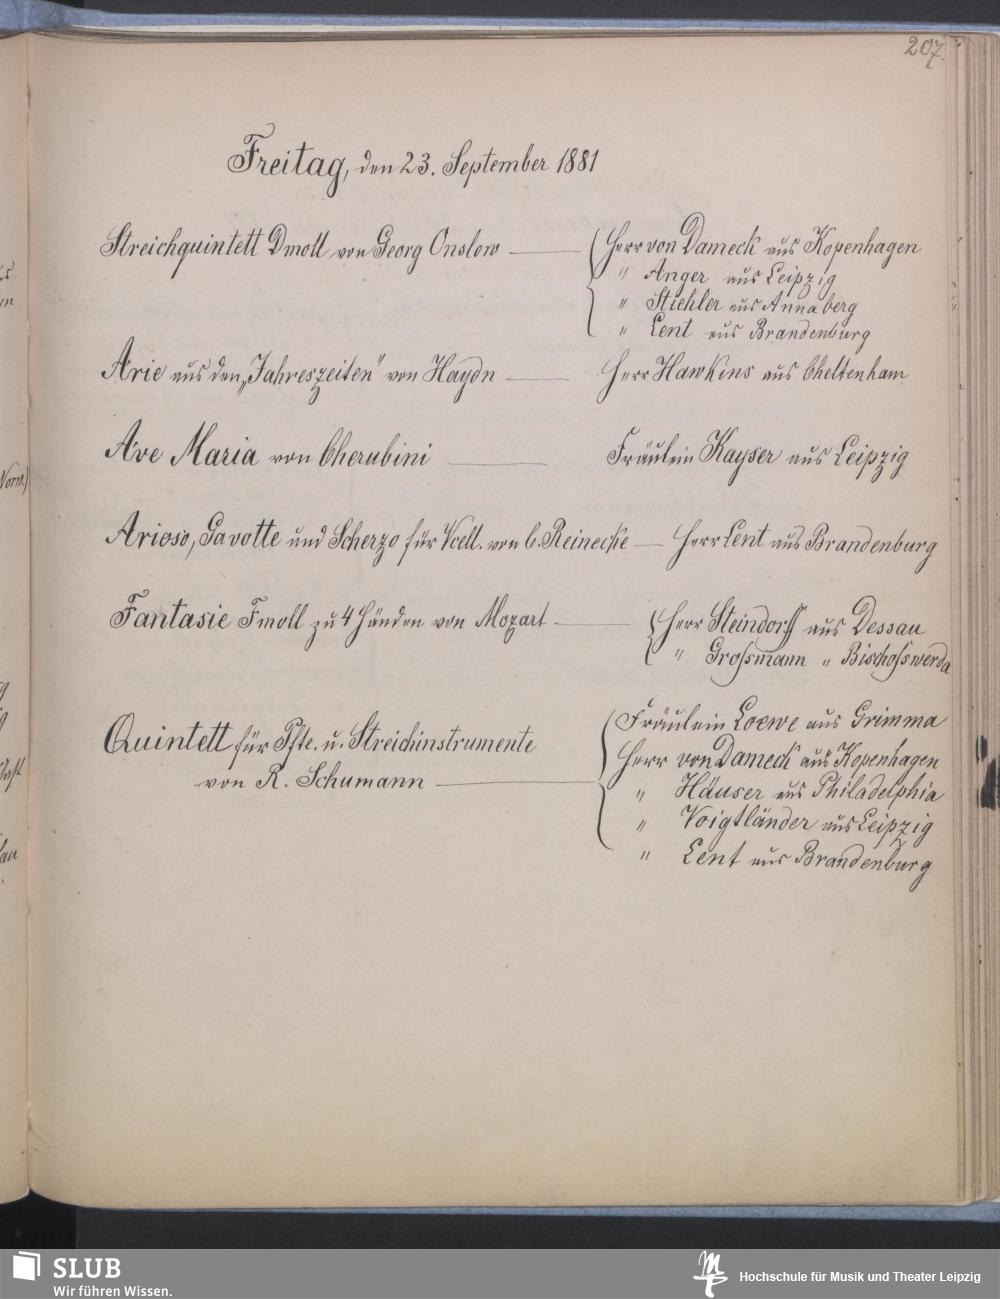 207.
Freitag, den 23. September 1881
Streichquintett Dmoll von Georg Onslow — Herr von Dameck aus Kopenhagen
" Anger aus Leipzig
" Stiehler aus Annaberg
" Lent aus Brandenburg
Arie aus den „Jahreszeiten" von Haydn — Herr Hawkins aus Cheltenham
Ave Maria von Cherubini — Fräulein Kayser aus Leipzig
Arioso, Gavotte und Scherzo für Vcell. von C. Reinecke — Herr Lent aus Brandenburg
Fantasie Fmoll zu 4 Händen von Mozart — Herr Steindorff aus Dessau
" Grossmann " Bischofswerda
Quintett für Pfte. u. Streichinstrumente
von R. Schumann —
Fräulein Loewe aus Grimma
Herr von Dameck aus Kopenhagen
" Häuser aus Philadelphia
" Voigtländer aus Leipzig
" Lent aus Brandenburg
SLUB
Wir führen Wissen.
Hochschule für Musik und Theater Leipzig